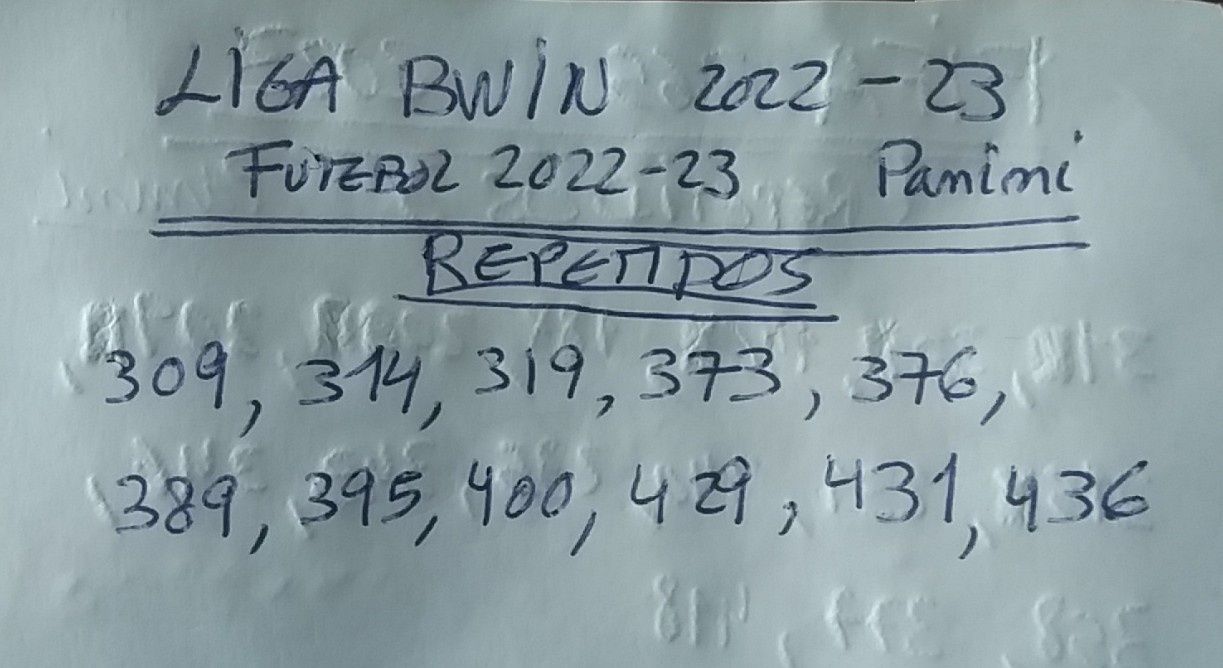 LIGA BWIN 2022-23
FUTEBOL 2022-23 Panini
REPETIDOS
309, 314, 319, 373, 376,
389, 395, 400, 429, 431, 436